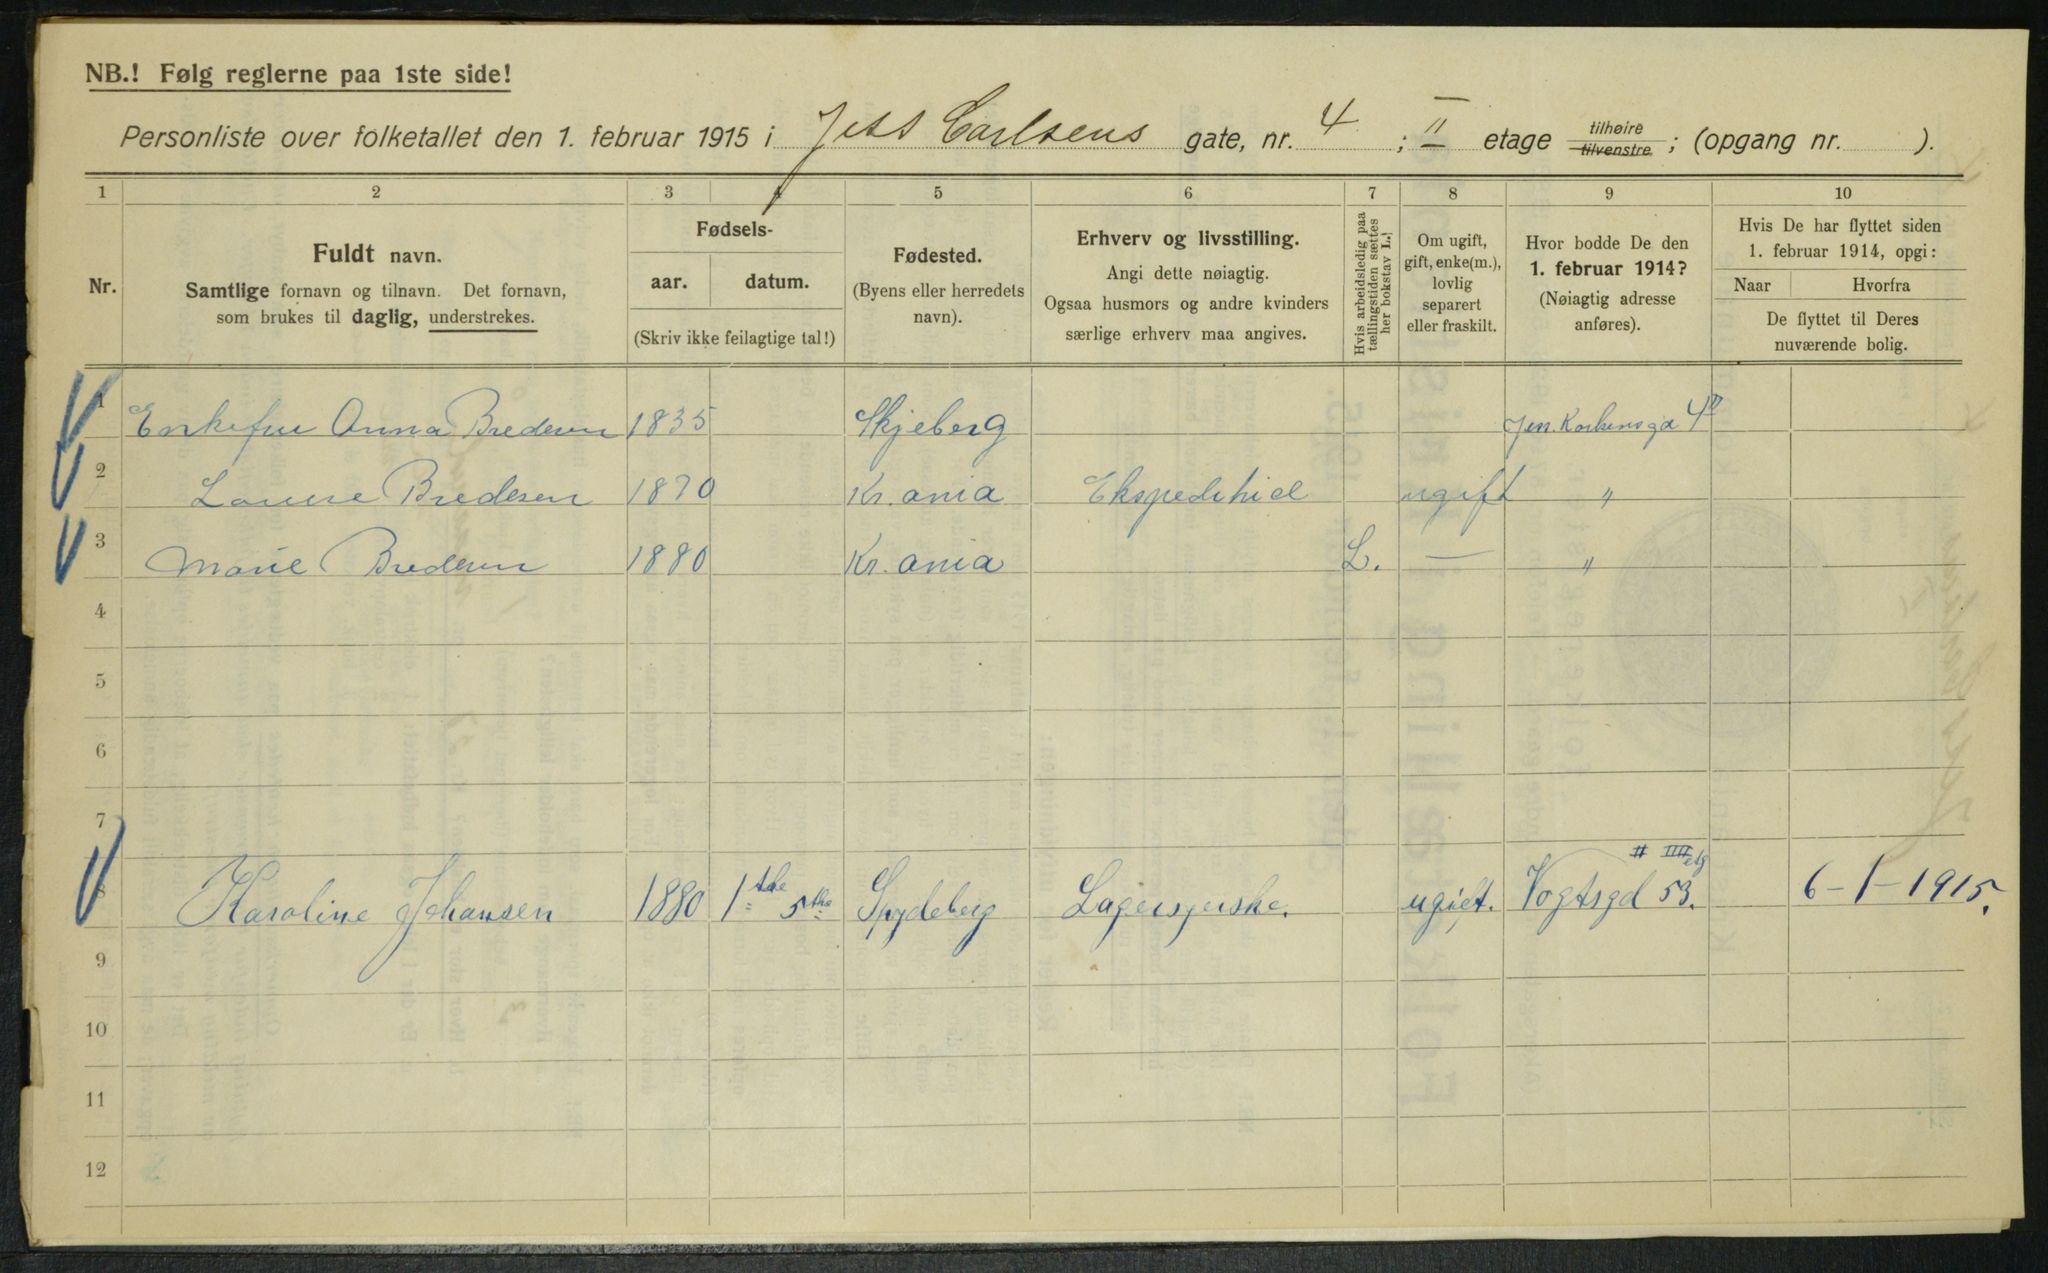 NB.! Følg reglerne paa 1ste side!
Personliste over folketallet den 1. februar 1915 i Jess Carlsens gate, nr. 4 ; II etage tilhøire tilvenstre ; (opgang nr. ).
1 2 3 4 5 6 7 8 9 10
Nr.
Fuldt navn.
Samtlige fornavn og tilnavn. Det fornavn,
som brukes til daglig, understrekes.
Fødsels-
aar. datum.
(Skriv ikke feilagtige tal!)
Fødested.
(Byens eller herredets
navn).
Erhverv og livsstilling.
Angi dette nøiagtig.
Ogsaa husmors og andre kvinders
særlige erhverv maa angives.
Hvis arbeidsledig paa
tællingstiden sættes
her bokstav L.!
Om ugift,
gift, enke(m.),
lovlig
separert
eller fraskilt.
Hvor bodde De den
1. februar 1914?
(Nøiagtig adresse
anføres).
Hvis De har flyttet siden
1. februar 1914, opgi:
Naar Hvorfra
De flyttet til Deres
nuværende bolig.
1 Enkefru Anna Bredesen 1835 Skjeberg Jess. Karlsensgd 4 II
2 Louise Bredesen 1870 Kr.ania Ekspeditrice ugift "
3 Marie Bredesen 1880 Kr.ania L. — "
4
5
6
7
8 Karoline Johansen 1880 1ste 5the Spydeberg Lagersjerske. ugift. Vogtsgd 53. II IIII etg 6-1-1915.
9
10
11
12